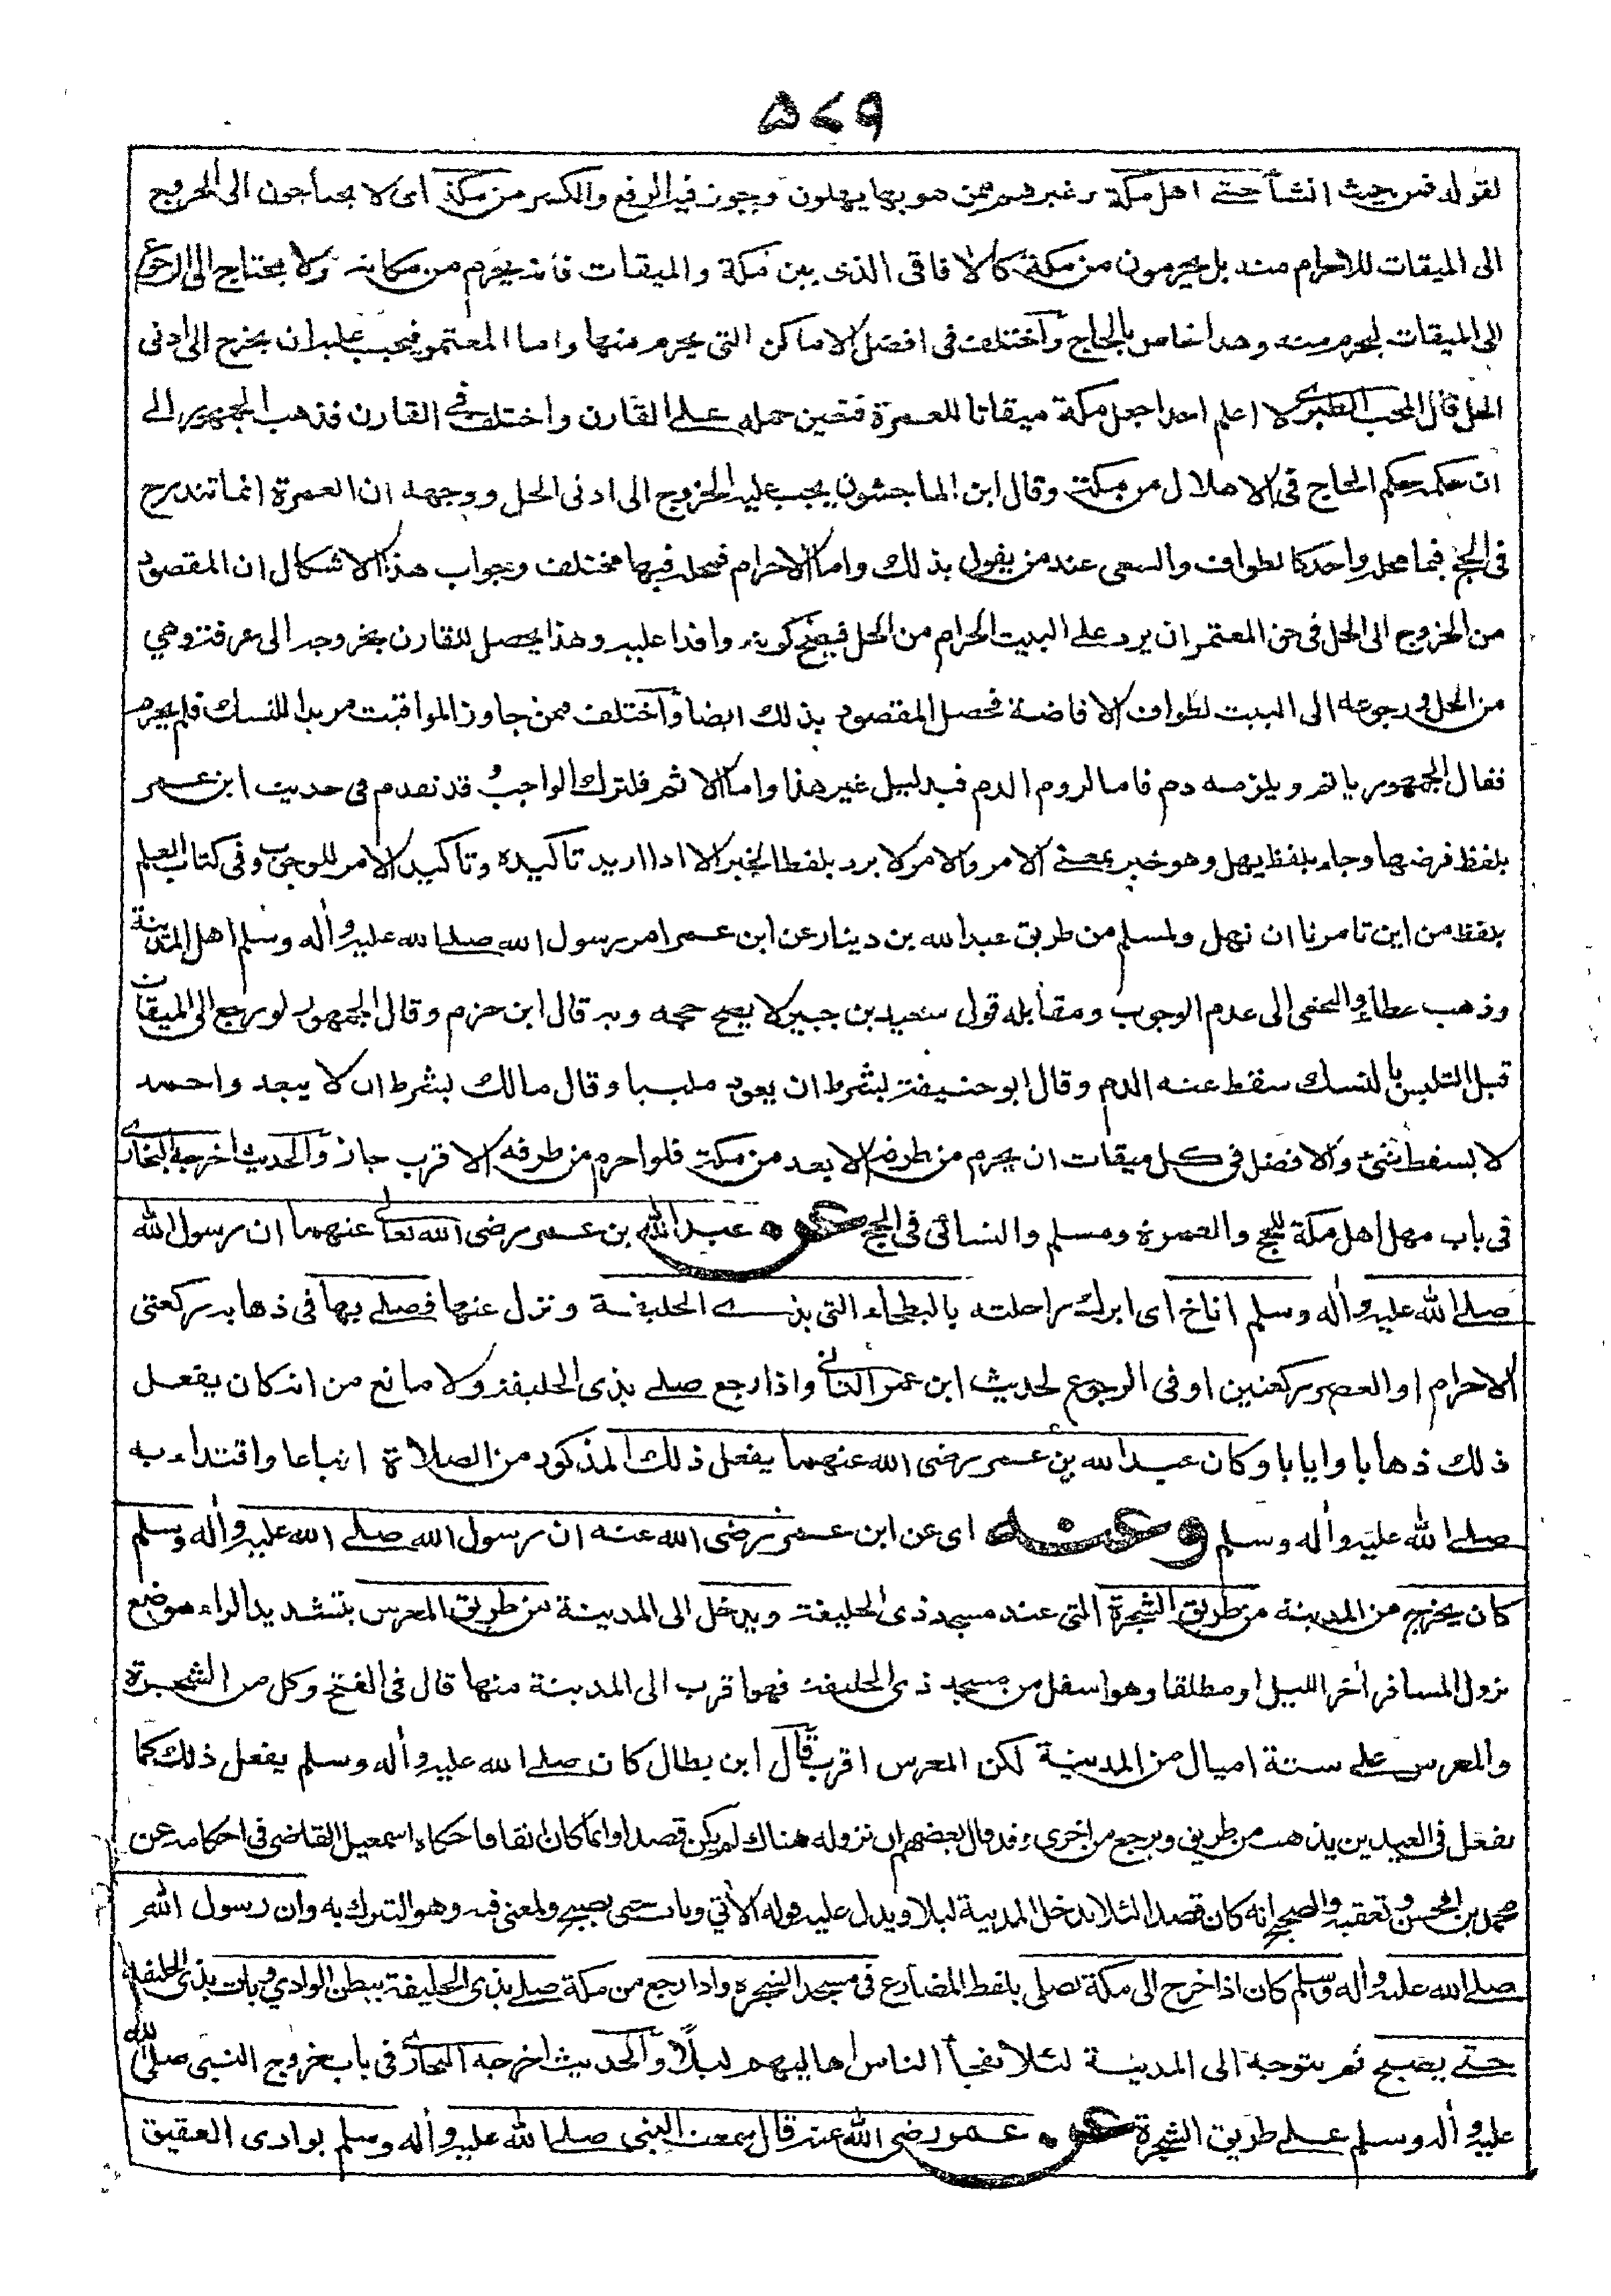 ۵۷۹
لقوله فمن حيث انشأ حتے اهل مكة وغيرهم ممن هو بها يهلون ويجوز فيه الرفع والكسر من مكة اى لا يحتاجون الى الخروج
الى الميقات للاحرام منه بل يحرمون من مكة كالافاقى الذى بين مكة والميقات فانه يحرم من مكانه ولا يحتاج الى الرجوع
الى الميقات ليحرم منه وهذا خاص بالحاج وأختلف فى افضل الاماكن التى يحرم منها واما المعتمر فيجب عليه ان يخرج الى ادنى
الحل قال المحب الطبرى لا اعلم احدا جعل مكة ميقاتا للعمرة فتعين حمله علے القارن واختلف فى القارن فذهب الجمهور الے
ان حكمه حكم الحاج فى الاهلال من مكة وقال ابن الماجشون يجب عليه الخروج الى ادنى الحل ووجهه ان العمرة انما تندرج
فى الحج فيما محله واحد كالطواف والسعى عند من يقول بذلك واما الاحرام فمحله فيها مختلف وجواب هذا الاشكال ان المقصود
من الخروج الى الحل فى حق المعتمر ان يرد على البيت الحرام من الحل فيصح كونه وافدا عليه وهذا يحصل للقارن بخروجه الى عرفة وهي
من الحل ورجوعه الى البيت لطواف الافاضة فحصل المقصود بذلك ايضا وأختلف فيمن جاوز المواقيت مريدا للنسك فلم يحرم
فقال الجمهور ياثم ويلزمه دم فاما لزوم الدم فبدليل غير هذا واما الاثم فلترك الواجب وقد تقدم فى حديث ابن عمر
بلفظ فرضها وجاء بلفظ يهل وهو خبر بمعنے الامر والامر لا يرد بلفظ الخبر الا اذا اريد تاكيده وتاكيد الامر للوجوب وفى كتاب العلم
بلفظ من اين تامرنا ان نهل ولمسلم من طريق عبد الله بن دينار عن ابن عمر امر رسول الله صلے الله عليه وأله وسلم اهل المدينة
وذهب عطاء والنخعى الى عدم الوجوب ومقابله قول سعيد بن جبير لا يصح حجه وبه قال ابن حزم وقال الجمهور لو رجع الى الميقات
قبل التلبس بالنسك سقط عنه الدم وقال ابو حنيفة بشرط ان يعود ملبيا وقال مالك بشرط ان لا يبعد واحمد
لا يسقط بشئ والافضل فى كل ميقات ان يحرم من طرفه الابعد من مكة فلو احرم من طرفه الاقرب جاز والحديث اخرجه البخارى
فى باب مهل اهل مكة للحج والعمرة ومسلم والنسائى فى الحج عن عبد الله بن عمر رضى الله تعالى عنهما ان رسول الله
صلے الله عليه وأله وسلم اناخ اى ابرك راحلته بالبطحاء التى بذے الحليفة ونزل عنها فصلے بها فى ذهابه ركعتى
الاحرام او العصر ركعتين او فى الرجوع لحديث ابن عمر الثانى واذا رجع صلے بذى الحليفة ولا مانع من انه كان يفعل
ذلك ذهابا وايابا وكان عبد الله بن عمر رضى الله عنهما يفعل ذلك المذكور من الصلاة اتباعا واقتداء به
صلے الله عليه وأله وسلم وعنه اى عن ابن عمر رضى الله عنه ان رسول الله صلے الله عليه وأله وسلم
كان يخرج من المدينة من طريق الشجرة التى عند مسجد ذى الحليفة ويدخل الى المدينة من طريق المعرس بتشديد الراء موضع
نزول المسافر أخر الليل او مطلقا وهو اسفل من مسجد ذى الحليفة فهو اقرب الى المدينة منها قال فى الفتح وكل من الشجرة
والمعرس على ستة اميال من المدينة لكن المعرس اقرب قال ابن بطال كان صلے الله عليه وأله وسلم يفعل ذلك كما
يفعل فى العيدين يذهب من طريق ويرجع من اخرى وقد قال بعضهم ان نزوله هناك لم يكن قصدا وانما كان اتفاقا حكاه اسمعيل القاضى فى احكامه عن
محمد بن الحسن وتعقبه والصحيح انه كان قصدا لئلا يدخل المدينة ليلا ويدل عليه قوله الأتي وبات حتى يصبح ولمعنى فيه وهو التبرك به وان رسول الله
صلے الله عليه وأله وسلم كان اذا خرج الى مكة يصلى بلفظ المضارع فى مسجد الشجرة واذا رجع من مكة صلے بذى الحليفة ببطن الوادي وبات بذى الحليفة
حتے يصبح ثم يتوجه الى المدينة لئلا يفجأ الناس اهاليهم ليلًا والحديث اخرجه البخارى فى باب خروج النبى صلے الله
عليه وأله وسلم علے طريق الشجرة عن عمر رضى الله عنه قال سمعت النبى صلے الله عليه وأله وسلم بوادى العقيق